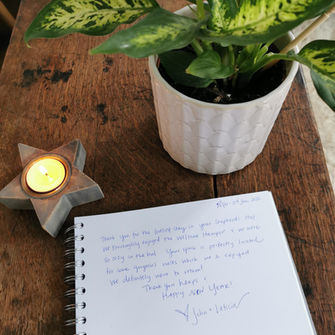 Thank you for the perfect stay in your Shepherds Hut
We thoroughly enjoyed the Welcome Hamper & we were
So cosy in the hut. Your space is perfectly located
for some gorgeous walks which we enjoyed
We definitely hope to return!
Thank you heaps &
Happy New Year!
John +